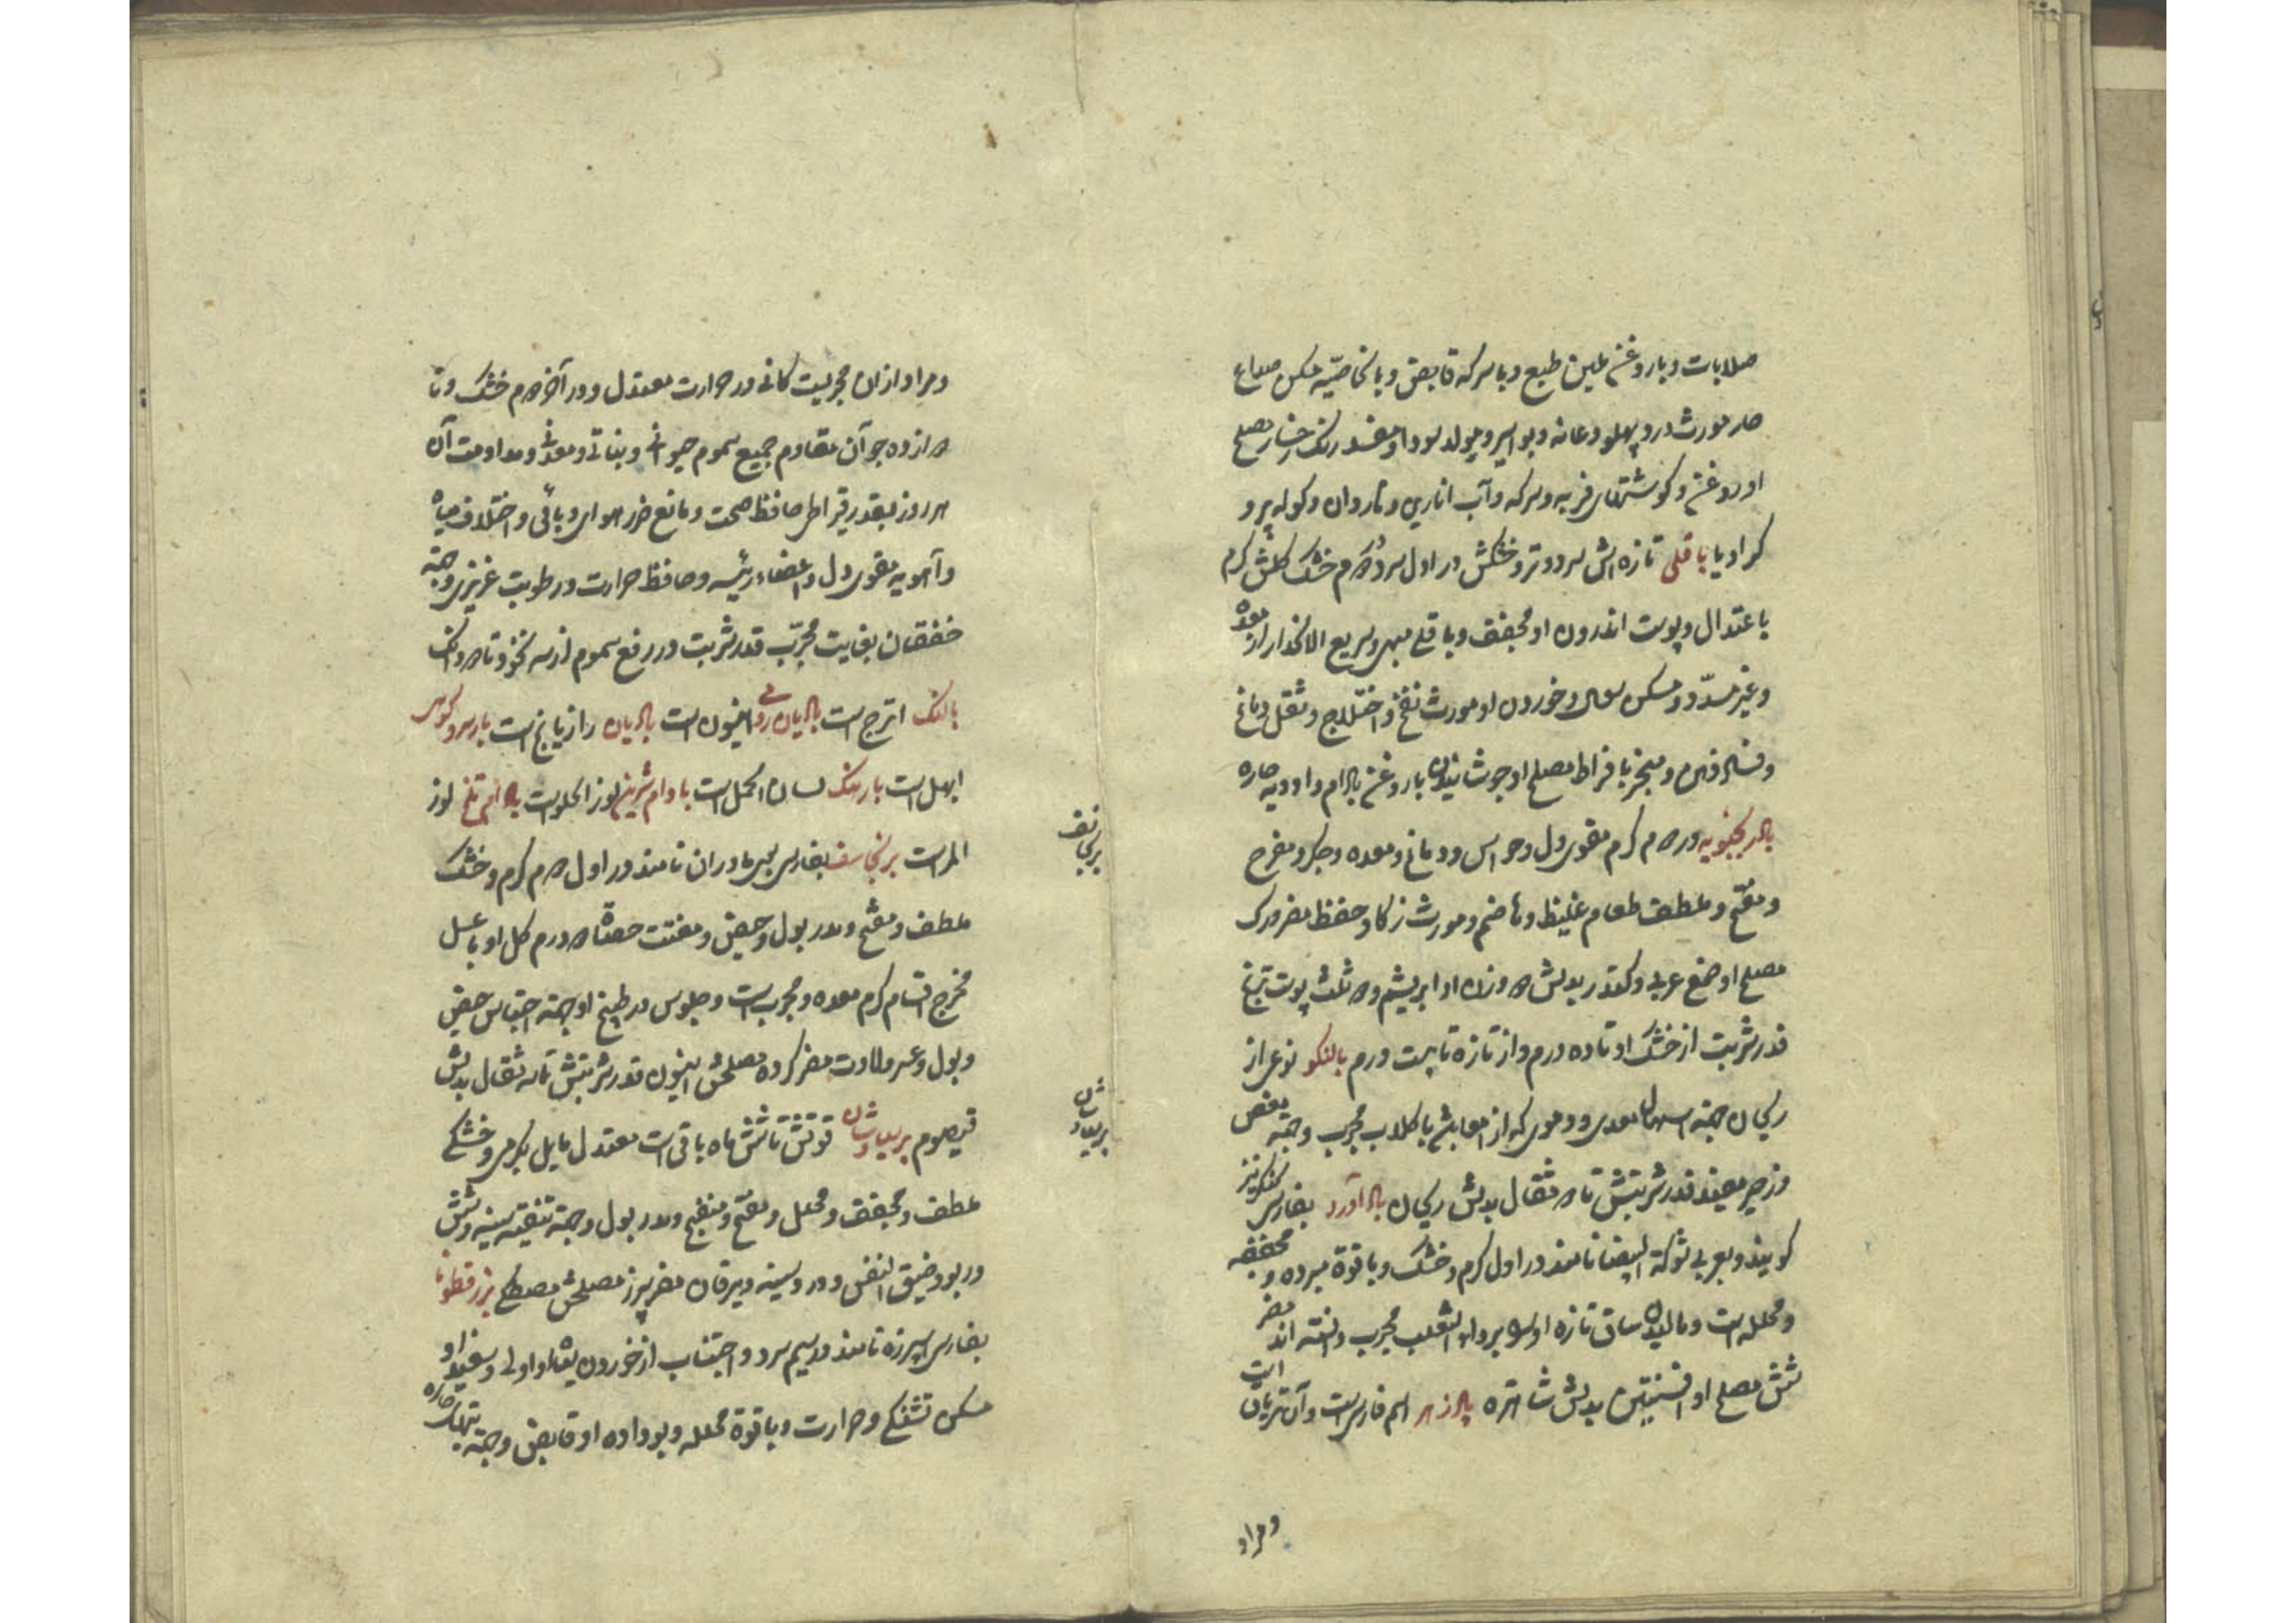 صلابات و با روغن ملین طبع و با سرکه قابض و بالخاصیّه مسکن صداع
حار مورث درد پهلو و عانه و بواسیر و مولد سودا و مفسد رنگ رخسار مصلح
او روغن و کوشتهای فربه و سرکه و آب انارین و ناردان و کوله پر و
کراویا باقلی تازه اش سرد و تر و خشکش در اول سرد و در دوم خشک کلش کرم
باعتدال و پوست اندرون او مجفف و باقلی مبهی و سریع الانحدار از معده
و غیر مسدّد و مسکن سعال و خوردن او مورث نفخ و اختلاج و ثقل دماغ
و فساد ذهن و مبخر بافراط مصلح او جوشانیدن با روغن بادام و ادویه حاره
بادرنجبویه در دوم کرم مقوی دل و حواس و دماغ و معده و جکر و مفرح
و مفتح و ملطف طعام غلیظ و هاضم و مورث ذکا و حفظ مضر ورک
مصلح او صمغ عربی و کندر بدلش دو وزن او ابریشم و دو ثلث پوست ترنج
قدر شربت از خشک او تا ده درم و از تازه تا بیست درم بالنکو نوعی از
ریحان جهة اسهال معدی و دموی که از امعا باشد با کلاب مجرب و جهة مغص
و زحیر مفید قدر شربتش تا دو مثقال بدلش ریحان بادآورد بفارسی کنکر تیز
کویند و بعربی شوکة البیضا نامند در اول کرم و خشک و با قوة مبرده و مجففه
و محلله است و مالیدن ساق تازه او را بر داء الثعلب مجرب دانسته اند مضر
شش مصلح او افسنتین بدلش شاهتره پادزهر اسم فارسی است و آن تریاق است
و مراد
و مراد از ان حجریست کانی در حرارت معتدل و در آخر دوم خشک و تا
دوازده جو آن مقاوم جمیع سموم حیوانی و نباتی و معدنی و مداومت آن
هر روز بقدر قیراطی حافظ صحت و مانع ضرر هوای وبائی و اختلاف میاه
و آهویه مقوی دل و اعضاء رئیسه و حافظ حرارت و رطوبت غریزی و جهة
خفقان بغایت مجرّب قدر شربت در رفع سموم از سه نخود تا دو دانک
بالنک اترج است بادیان رومی انیسون است بادیان رازیانج است بارسروکوهی
ابهل است بارتنک لسان الحمل است بادام شرین لوز الحلوست بادام تلخ لوز
المراست برنجاسف بفارسی بوی مادران نامند در اول دوم کرم و خشک
ملطف و مفتح و مدر بول و حیض و مفتت حصاة دو درم کل او با عسل
مخرج اقسام کرم معده و مجرب است و جلوس در طبیخ او جهة احتباس حیض
و بول و عسر ولادت مضر کرده مصلحش انیسون قدر شربتش تا سه مثقال بدلش
قیصوم پرسیاوشان قوتش تا شش ماه باقی است معتدل مایل بکرمی و خشکی
ملطف و مجفف و محلل و مفتح و منضج و مدر بول و جهة تنقیه سینه و شش
و ربو و ضیق النفس و درد سینه و یرقان مضر سپرز مصلحش مصطکی بزرقطونا
بفارسی اسپرزه نامند در سیم سرد و اجتناب از خوردن او اولی و سفید او
مسکن تشنکی و حرارت و با قوة محلله و بوداده او قابض و جهة تبهای حاره
برنجاسف
پرسیاوشان